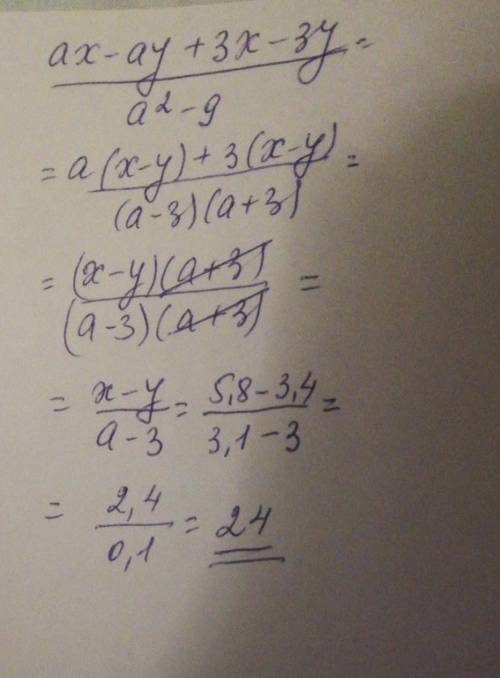 ax-ay+3x-3y=
a²-9
=a(x-y)+3(x-y)=
(a-3)(a+3)
=(x-y)(a+3)=
(a-3)(a+3)
= x-y = 5,8-3,4 =
a-3 3,1-3
= 2,4 = 24
0,1